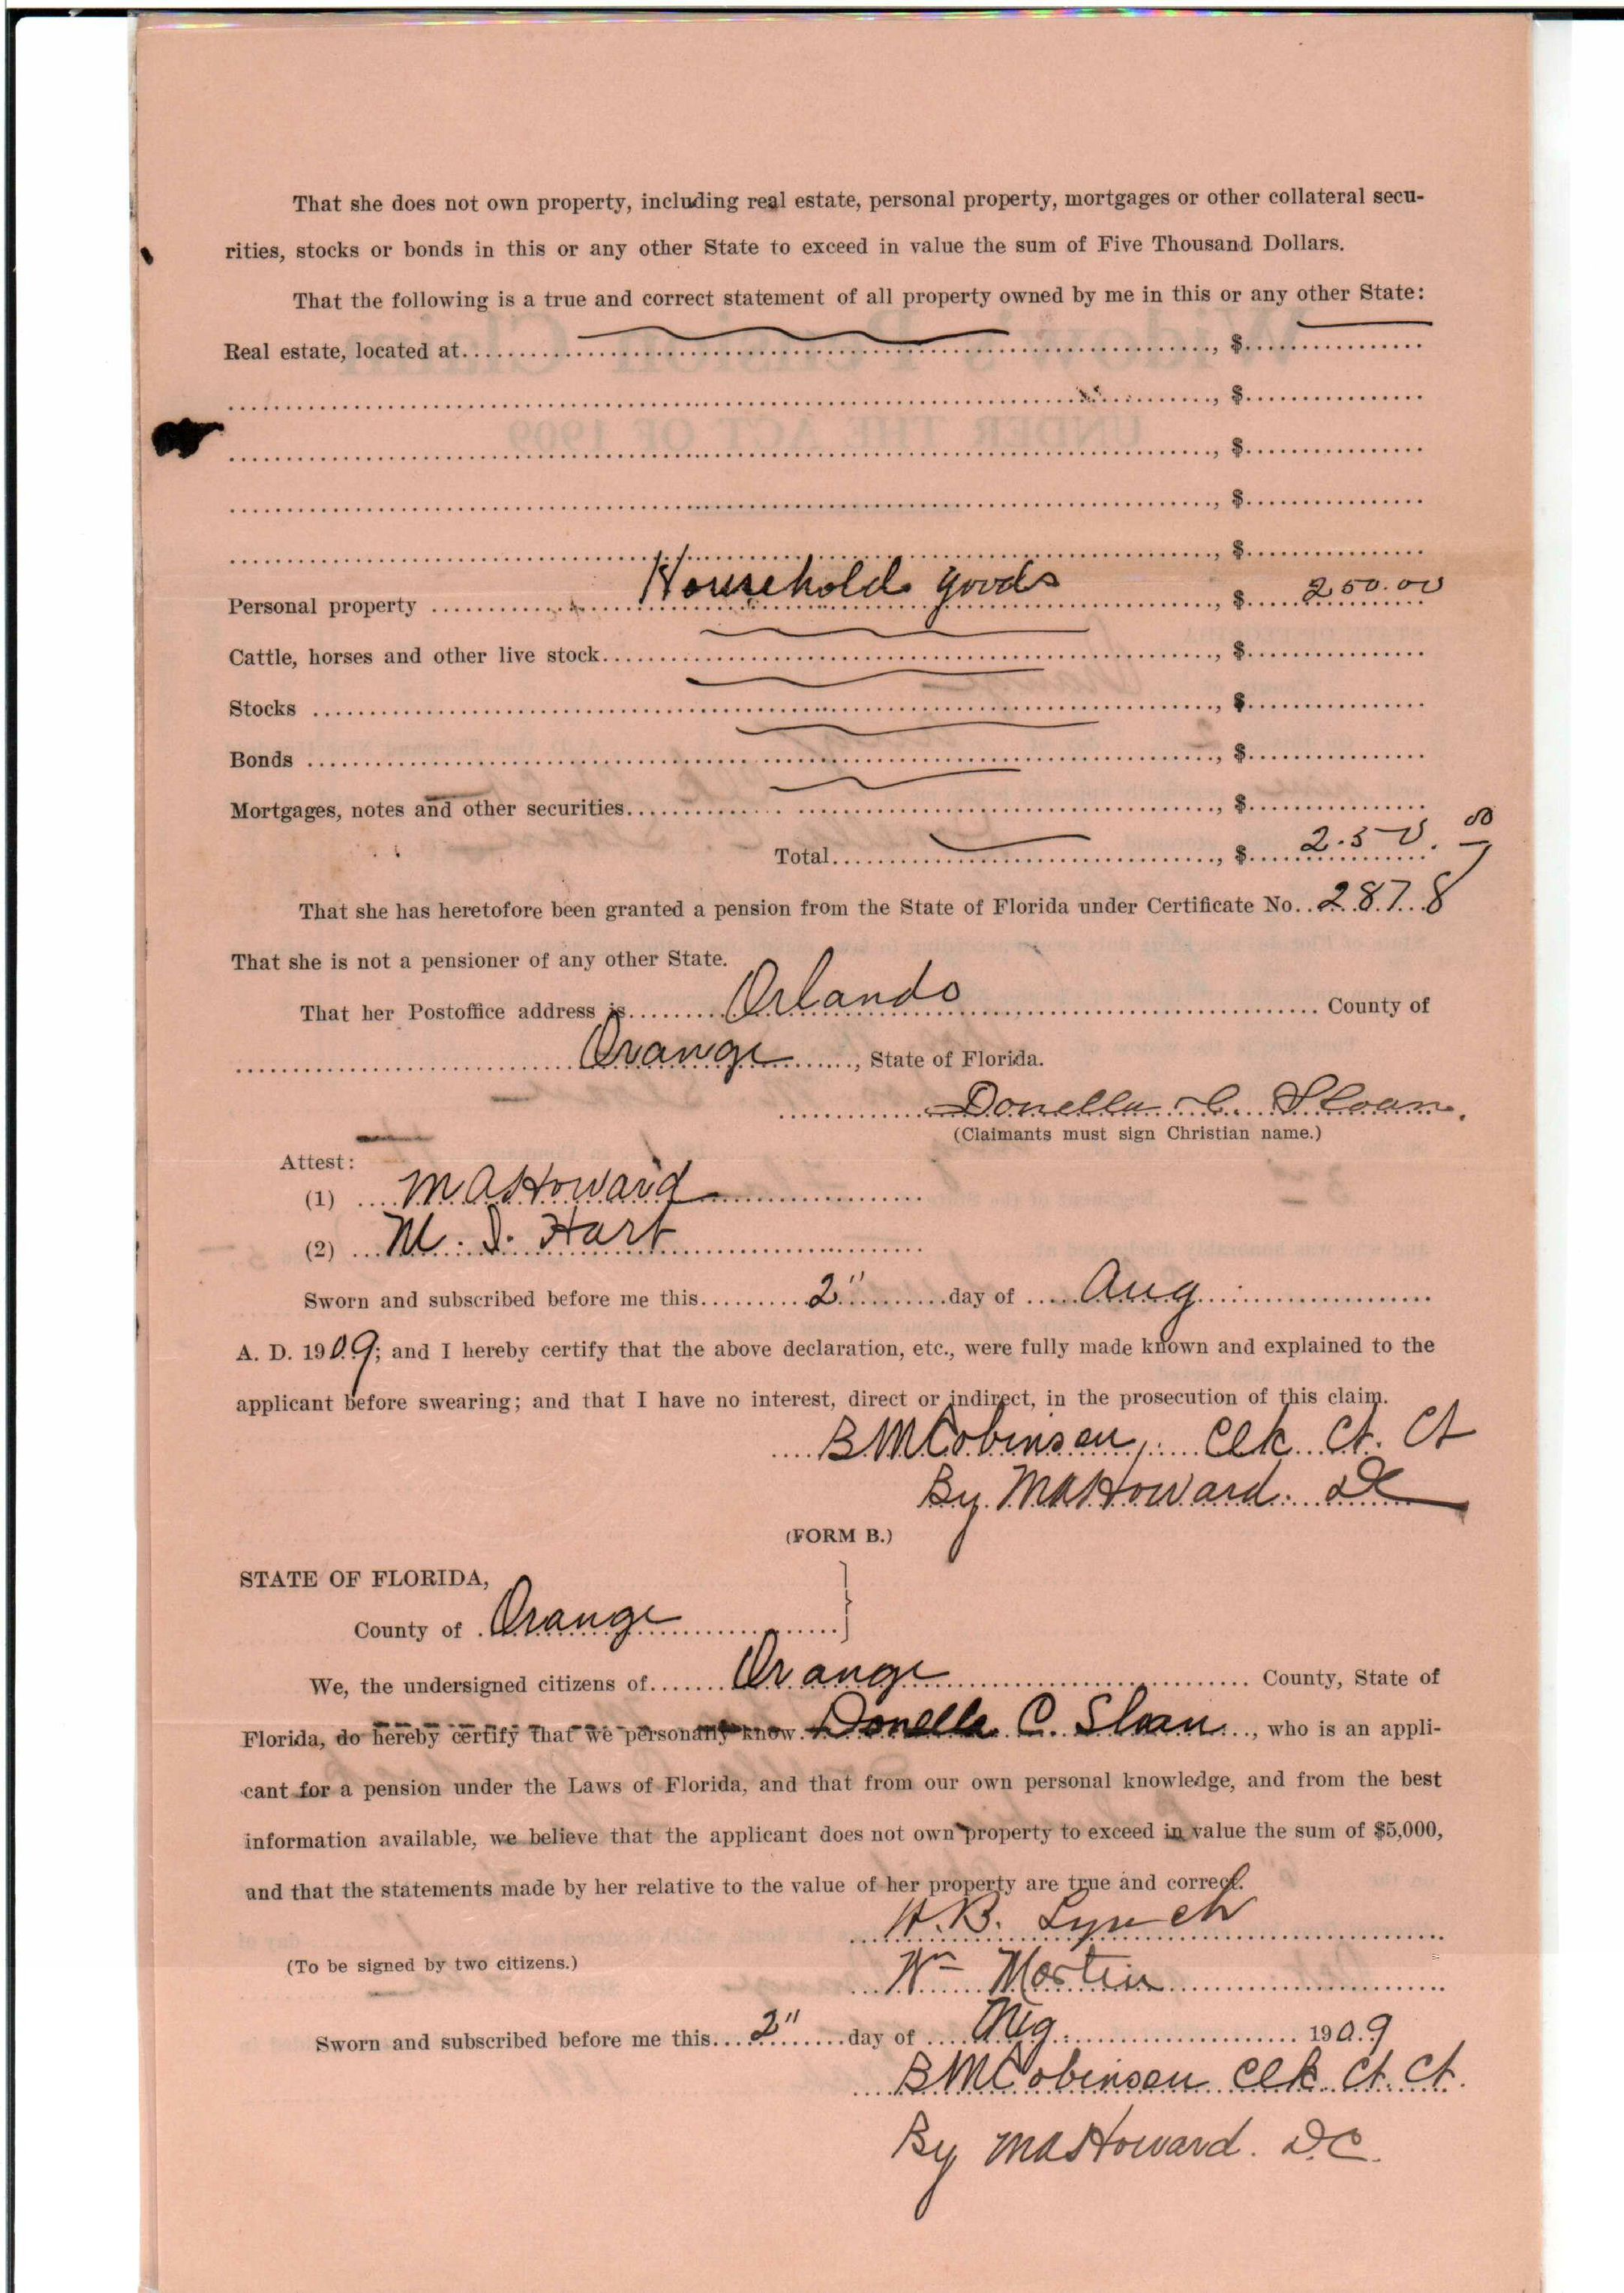 That she does not own property, including real estate, personal property, mortgages or other collateral secu-
rities, stocks or bonds in this or any other State to exceed in value the sum of Five Thousand Dollars.
That the following is a true and correct statement of all property owned by me in this or any other State:
Real estate, located at........................................, $................
........................................, $................
........................................, $................
........................................, $................
........................................, $................
Personal property ........ Household goods ........, $ 250.00
Cattle, horses and other live stock........................................, $................
Stocks ........................................, $................
Bonds ........................................, $................
Mortgages, notes and other securities........................................, $................
Total........................................, $ 250.00
That she has heretofore been granted a pension from the State of Florida under Certificate No. 2878
That she is not a pensioner of any other State.
That her Postoffice address is........ Orlando ........ County of
........ Orange ........, State of Florida.
Donella C. Sloan.
(Claimants must sign Christian name.)
Attest:
(1) M A Howard
(2) M. I. Hart
Sworn and subscribed before me this........ 2" ........day of ........ Aug ........
A. D. 1909; and I hereby certify that the above declaration, etc., were fully made known and explained to the
applicant before swearing; and that I have no interest, direct or indirect, in the prosecution of this claim.
B M Robinson, Clk Ct. Ct
By M A Howard. DC
(FORM B.)
STATE OF FLORIDA,
County of Orange
We, the undersigned citizens of........ Orange ........ County, State of
Florida, do hereby certify that we personally know Donella C. Sloan, who is an appli-
cant for a pension under the Laws of Florida, and that from our own personal knowledge, and from the best
information available, we believe that the applicant does not own property to exceed in value the sum of $5,000,
and that the statements made by her relative to the value of her property are true and correct.
H. B. Lynch
(To be signed by two citizens.)
Wm Martin
Sworn and subscribed before me this.... 2" ....day of .... Aug. .... 1909
B M Robinson Clk Ct. Ct.
By M A Howard. D.C.